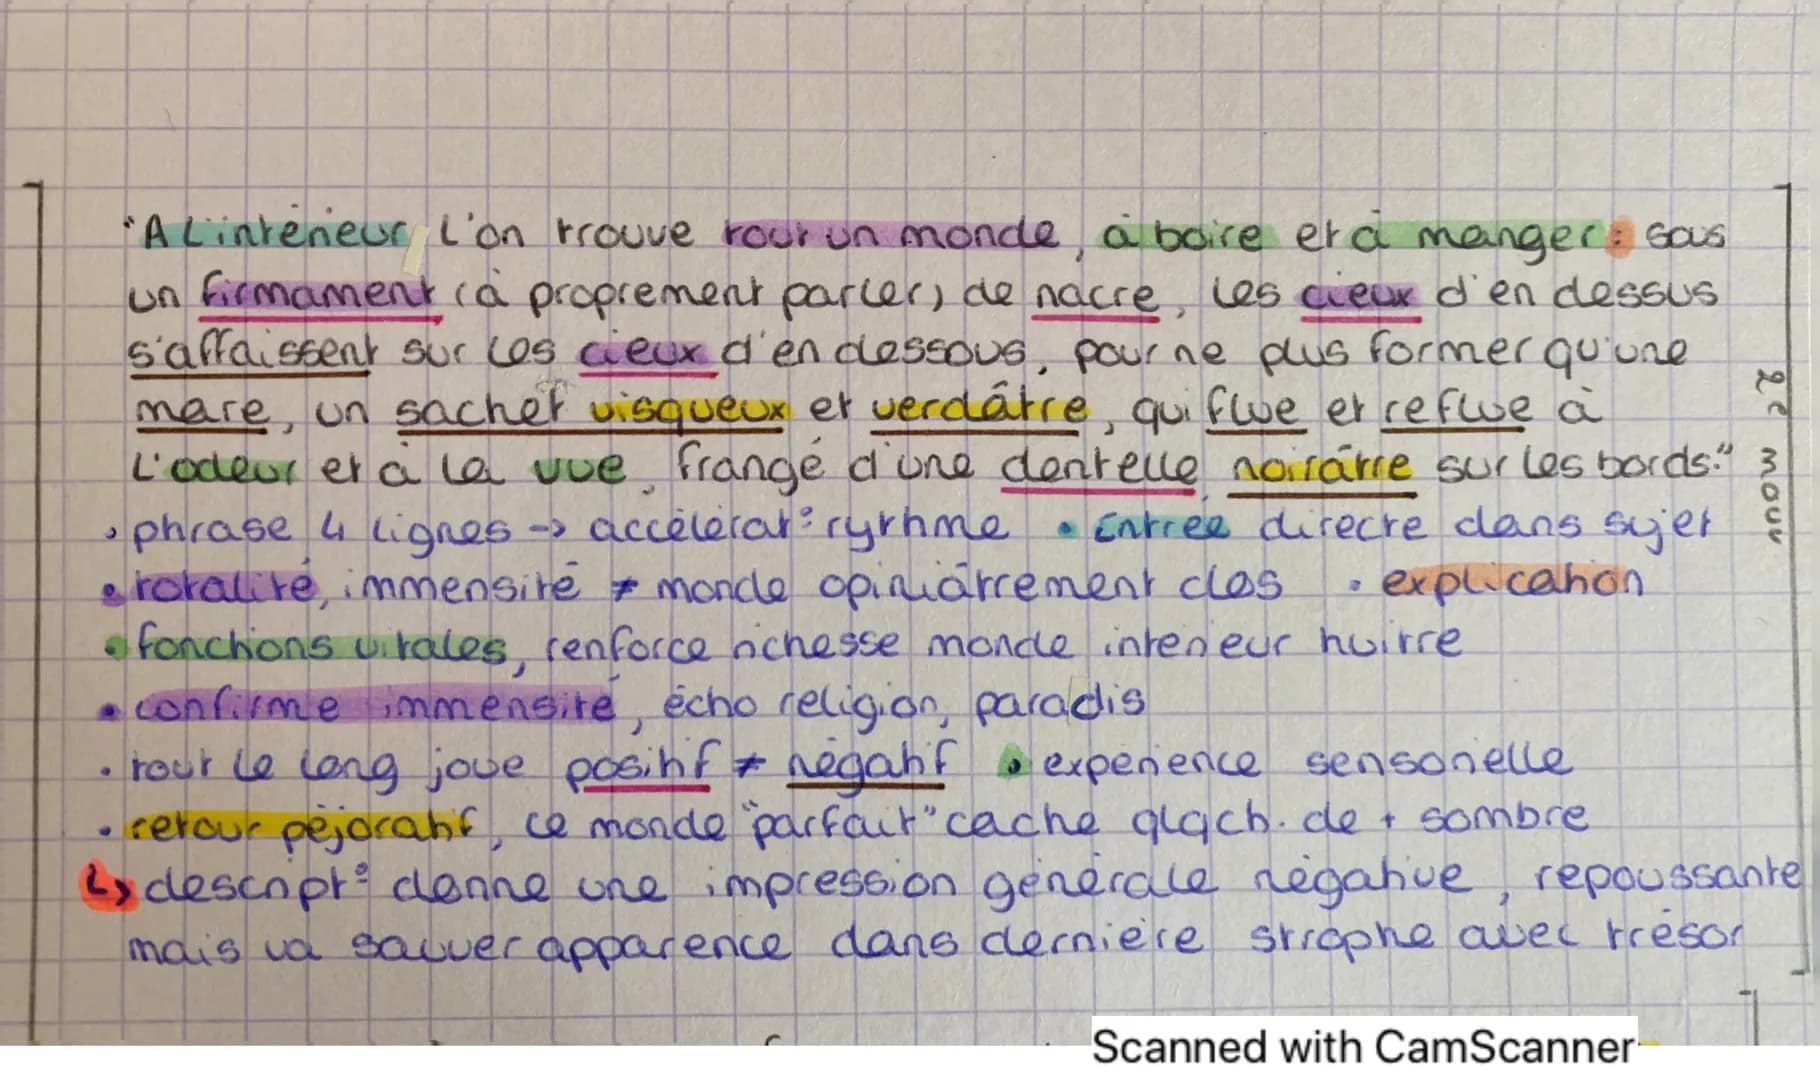 "A l'intérieur, l'on trouve tout un monde, à boire et à manger : sous
un firmament (à proprement parler) de nacre, les cieux d'en dessus
s'affaissent sur les cieux d'en dessous, pour ne plus former qu'une
mare, un sachet visqueux et verdâtre, qui flue et reflue à
l'odeur et à la vue, frangé d'une dentelle noirâtre sur les bords."
2e mouv
• phrase 4 lignes -> accélérat° rythme • Entrée directe dans sujet
• totalité, immensité ≠ monde opiniâtrement clos • explication
• fonctions vitales, renforce richesse monde intérieur huitre
• confirme immensité, écho religion, paradis
• tout le long joue positif ≠ négatif • expérience sensorielle
• retour péjoratif, ce monde "parfait" cache qlqch. de + sombre
↳ descript° donne une impression générale négative, repoussante
mais va sauver apparence dans dernière strophe avec trésor
Scanned with CamScanner